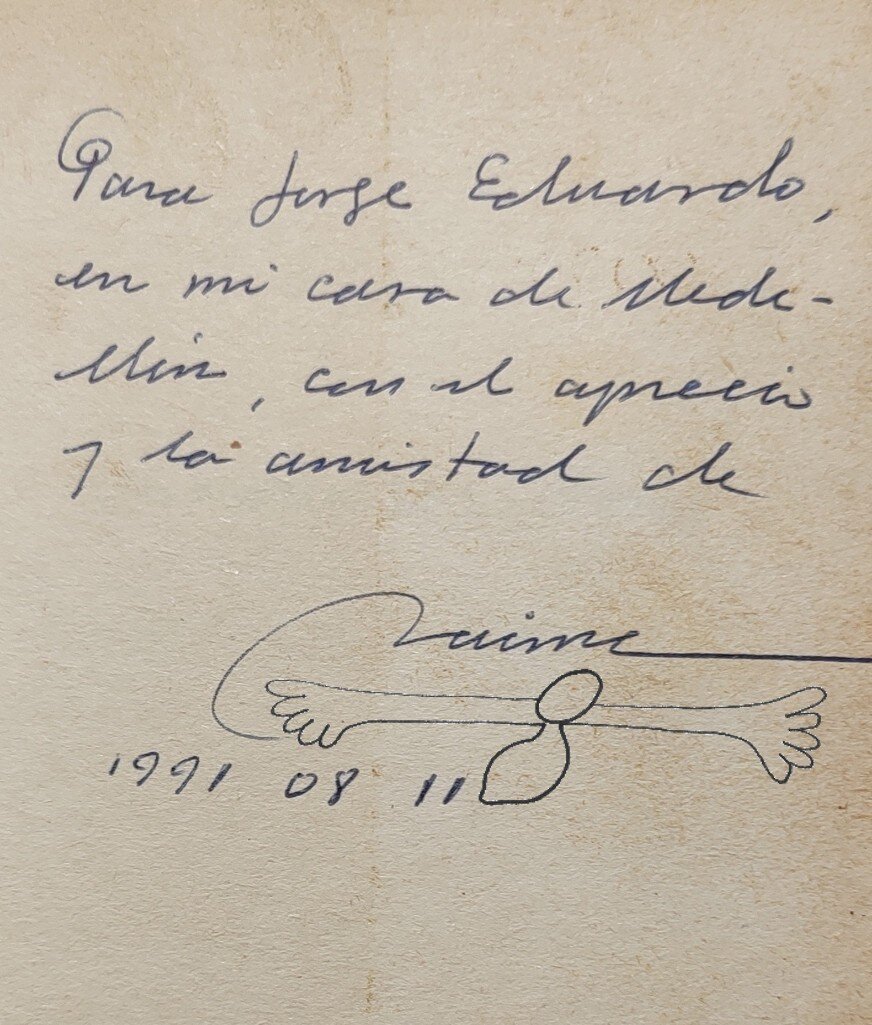 Para Jorge Eduardo,
en mi casa de Mede-
llín, con el aprecio
y la amistad de
Jaime
1991 08 11